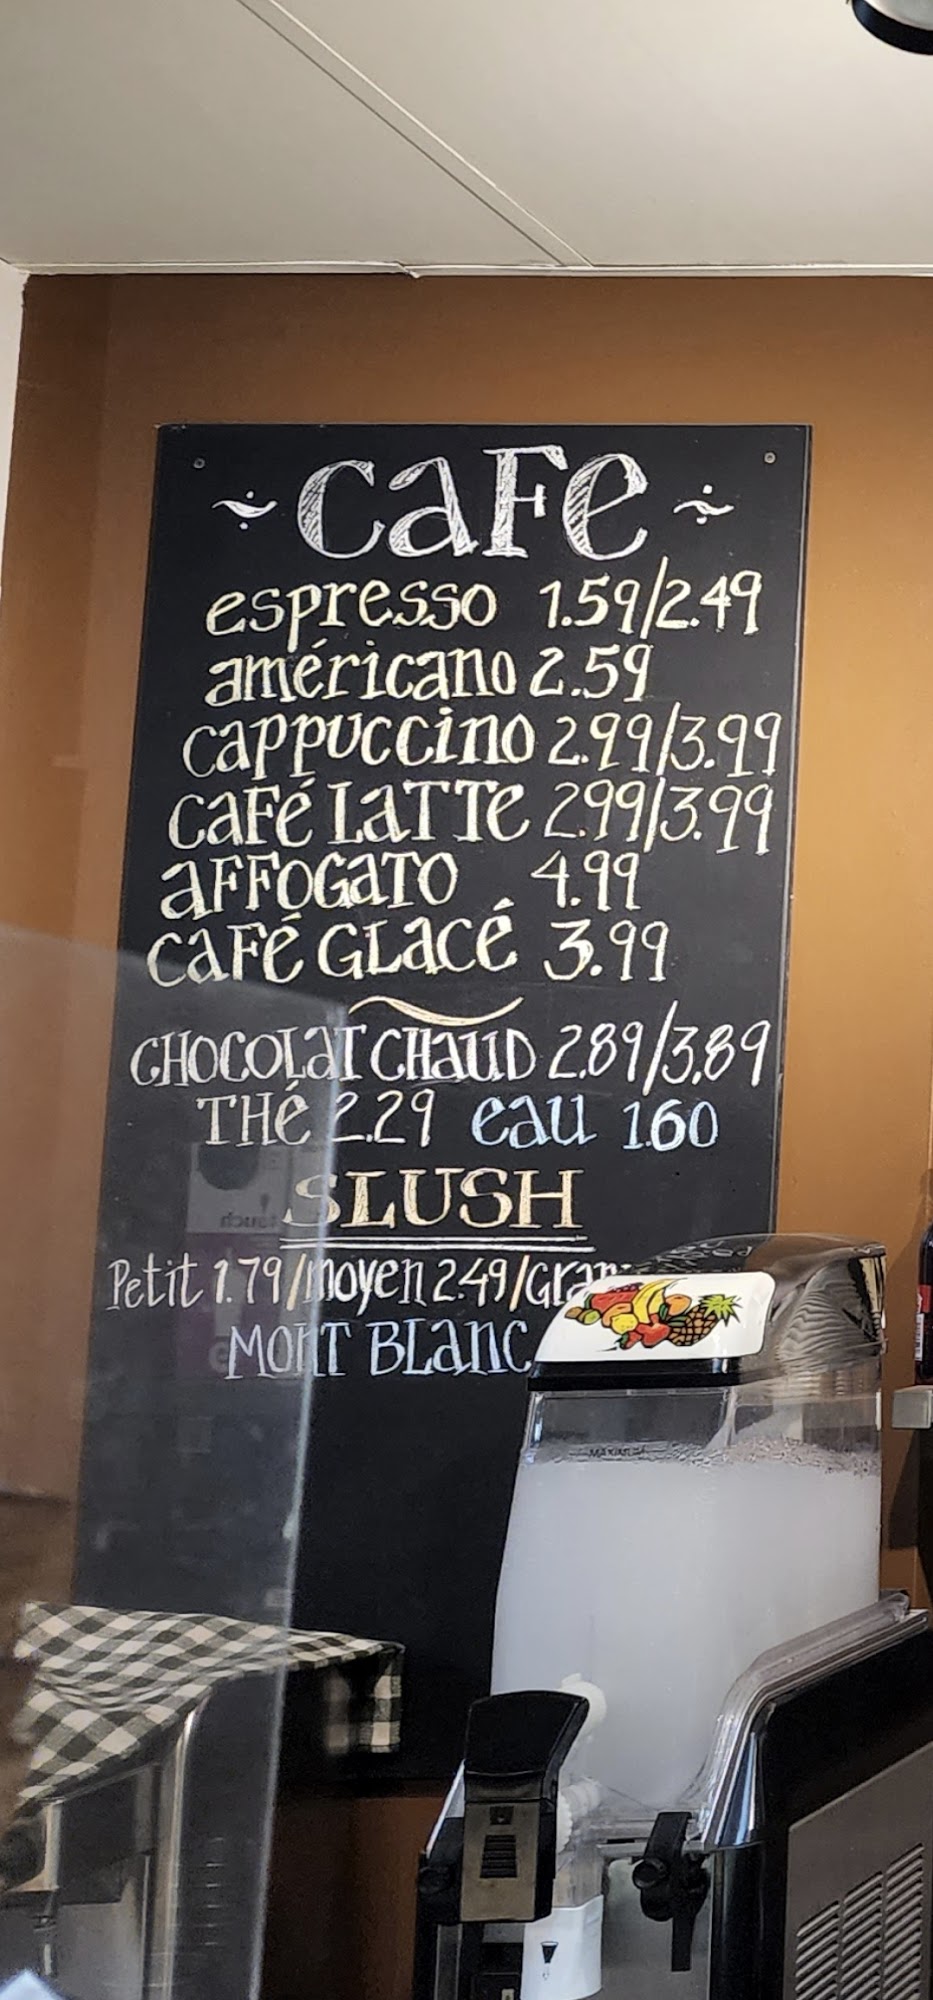 CaFe
espresso 1.59/2.49
américano 2.59
cappuccino 2.99/3.99
CAFé LATTE 2.99/3.99
AFFOGATO 4.99
CAFé GLACÉ 3.99
CHOCOLAT CHAUD 2.89/3.89
THÉ 2.29 eau 1.60
SLUSH
Petit 1.79/moyen 2.49/
MONT BLANC
MAXIMUM